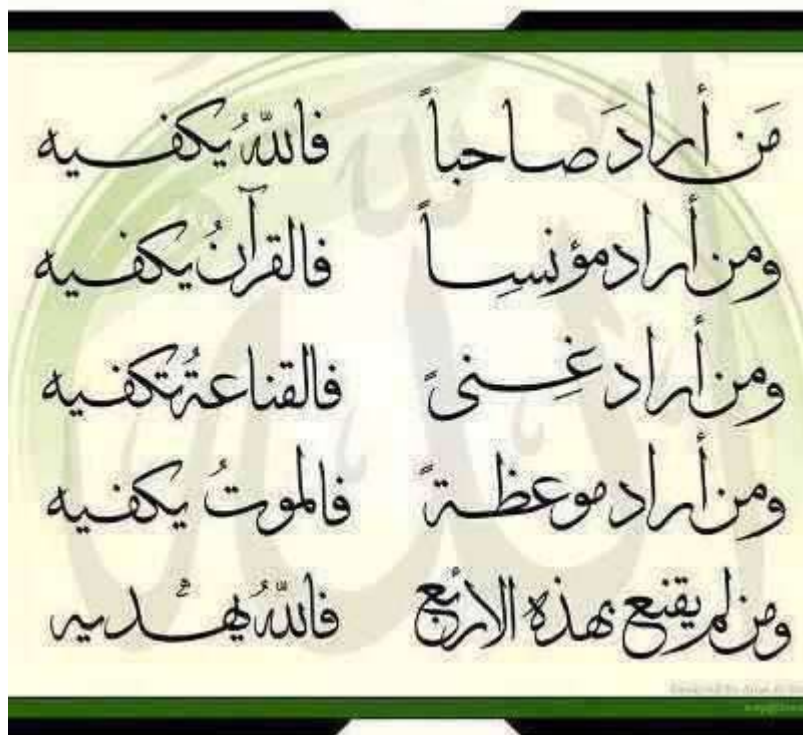 مَن أراد صاحباً فاللّٰهُ يكفيه
ومن أراد مؤنسِاً فالقرآنُ يكفيه
ومن أراد غِنىً فالقناعةُ تكفيه
ومن أراد موعظةً فالموتُ يكفيه
ومن لم يقنع بهذه الاربع فاللّٰهُ يهديه